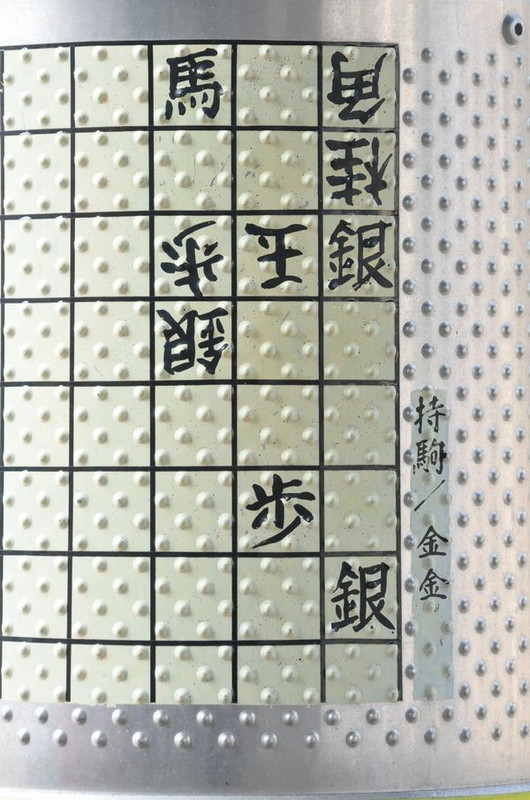 馬 角
桂
歩 玉 銀
銀
歩
銀
持駒／金金